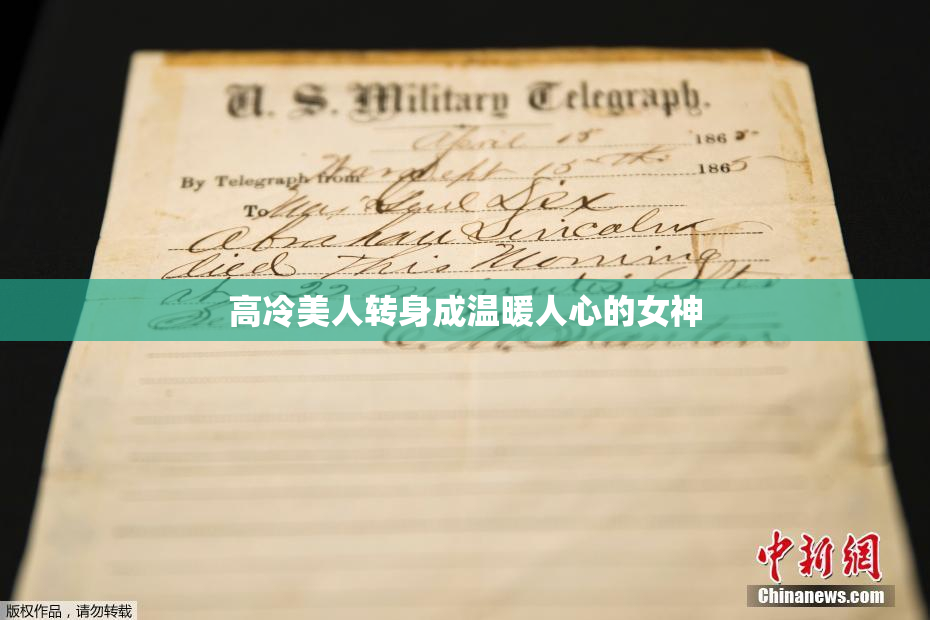 U. S. Military Telegraph.
April 15 1865
By Telegraph from War Dept 15th 1865
To Maj Genl Dix
Abraham Lincoln
died This Morning
at 22 minutes after
高冷美人转身成温暖人心的女神
E. M. Stanton
中新网
Chinanews.com
版权作品，请勿转载